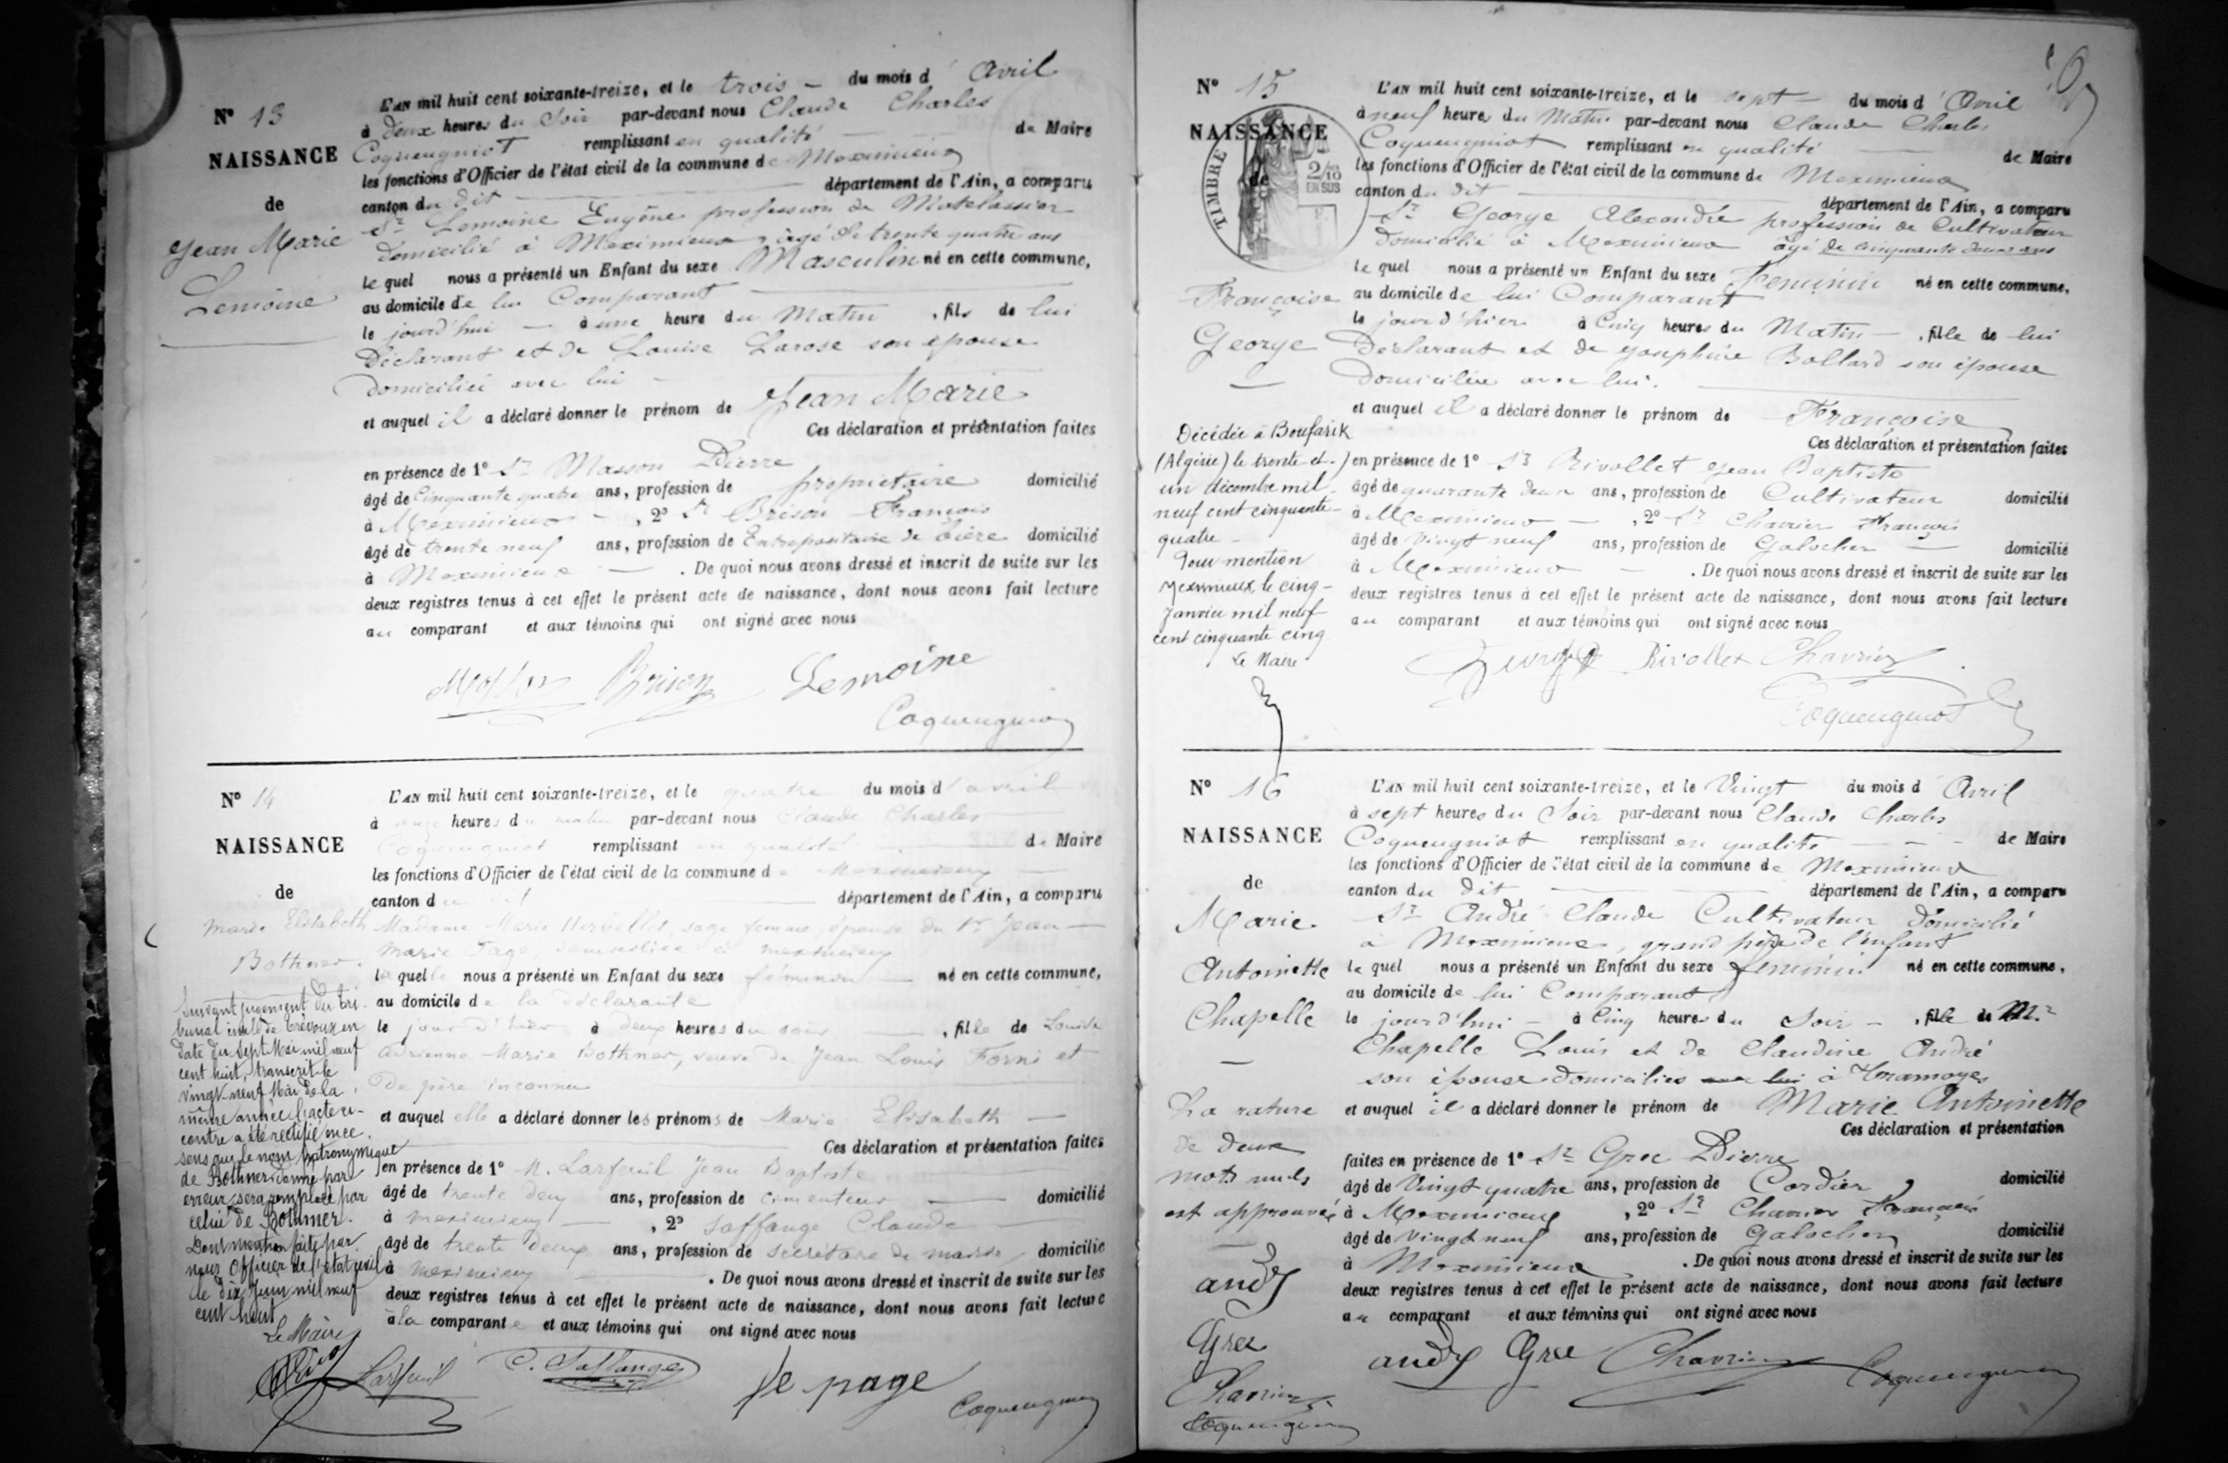 Nº 13
NAISSANCE
de
Jean Marie
Lemoine
L'AN mil huit cent soixante-treize, et le trois du mois d'Avril
à deux heures du Soir par-devant nous Claude Charles
Coquengniot remplissant en qualité de Maire
les fonctions d'Officier de l'état civil de la commune de Meximieux
canton du dit département de l'Ain, a comparu
Sr Lemoine Eugène profession de Matelassier
domicilié à Meximieux, âgé de trente quatre ans
le quel nous a présenté un Enfant du sexe Masculin né en cette commune,
au domicile de lui Comparant
le jourd'hui à une heure du Matin, fils de lui
Déclarant et de Louise Larose son épouse
domiciliée avec lui
et auquel il a déclaré donner le prénom de Jean Marie
Ces déclaration et présentation faites
en présence de 1º Sr Masson Pierre
âgé de Cinquante quatre ans, profession de propriétaire domicilié
à Meximieux, 2º Sr Brison François
âgé de trente neuf ans, profession de Entrepositaire de bière domicilié
à Meximieux. De quoi nous avons dressé et inscrit de suite sur les
deux registres tenus à cet effet le présent acte de naissance, dont nous avons fait lecture
au comparant et aux témoins qui ont signé avec nous
Masson Brison Lemoine
Coquengniot
Nº 14
NAISSANCE
de
Marie Elisabeth
Bothner
Suivant jugement du tri-
bunal civil de Trévoux en
date du sept Mai mil neuf
cent huit, transcrit le
vingt-neuf Mai de la
même année l'acte ci-
contre a été rectifié en ce
sens que le nom patronymique
de Bothner donné par
erreur, sera remplacé par
celui de Bohmer.
Dont mention faite par
nous Officier de l'Etat civil
le dix Juin mil neuf
cent huit
Le Maire
L'AN mil huit cent soixante-treize, et le quatre du mois d'avril
à onze heures du matin par-devant nous Claude Charles
Coquengniot remplissant en qualité de Maire
les fonctions d'Officier de l'état civil de la commune de Meximieux
canton du dit département de l'Ain, a comparu
Madame Marie sage femme, épouse du Sr Jean
Marie Page, domiciliée à Meximieux
la quelle nous a présenté un Enfant du sexe féminin né en cette commune,
au domicile de la déclarante
le jour d'hier à deux heures du soir, fille de Louise
Adrienne Marie Bothner, veuve de Jean Louis Forni et
de père inconnu
et auquel elle a déclaré donner les prénoms de Marie Elisabeth
Ces déclaration et présentation faites
en présence de 1º M. Larfeuil Jean Baptiste
âgé de trente deux ans, profession de cimenteur domicilié
à Meximieux, 2º Saffange Claude
âgé de trente deux ans, profession de secrétaire de mairie domicilié
à Meximieux. De quoi nous avons dressé et inscrit de suite sur les
deux registres tenus à cet effet le présent acte de naissance, dont nous avons fait lecture
à la comparante et aux témoins qui ont signé avec nous
Larfeuil C. Saffange fe page Coquengniot
Nº 15
NAISSANCE
de
TIMBRE
2/10
EN SUS
Françoise
George
Décédée à Boufarik
(Algérie) le trente et
un décembre mil
neuf cent cinquante-
quatre
Pour mention
Meximieux, le cinq
Janvier mil neuf
cent cinquante cinq
Le Maire
L'AN mil huit cent soixante-treize, et le sept du mois d'Avril
à neuf heures du Matin par-devant nous Claude Charles
Coquengniot remplissant en qualité de Maire
les fonctions d'Officier de l'état civil de la commune de Meximieux
canton du dit département de l'Ain, a comparu
Sr George Alexandre profession de Cultivateur
domicilié à Meximieux âgé de cinquante deux ans
le quel nous a présenté un Enfant du sexe Féminin né en cette commune,
au domicile de lui Comparant
le jour d'hier à Cinq heures du Matin, fille de lui
Déclarant et de Joséphine Bollard son épouse
domiciliée avec lui.
et auquel il a déclaré donner le prénom de Françoise
Ces déclaration et présentation faites
en présence de 1º Sr Rivollet Jean Baptiste
âgé de quarante deux ans, profession de Cultivateur domicilié
à Meximieux, 2º Sr Chavrier François
âgé de vingt neuf ans, profession de Galocher domicilié
à Meximieux. De quoi nous avons dressé et inscrit de suite sur les
deux registres tenus à cet effet le présent acte de naissance, dont nous avons fait lecture
au comparant et aux témoins qui ont signé avec nous
George Rivollet Chavrier
Coquengniot
Nº 16
NAISSANCE
de
Marie
Antoinette
Chapelle
La rature
de deux
mots nuls
est approuvée
andré
Gree
Chavrier
Coquengniot
L'AN mil huit cent soixante-treize, et le Vingt du mois d'Avril
à sept heures du Soir par-devant nous Claude Charles
Coquengniot remplissant en qualité de Maire
les fonctions d'Officier de l'état civil de la commune de Meximieux
canton du dit département de l'Ain, a comparu
Sr André Claude Cultivateur domicilié
à Meximieux, grand père de l'enfant
le quel nous a présenté un Enfant du sexe féminin né en cette commune,
au domicile de lui Comparant
le jourd'hui à Cinq heures du Soir, fille de Mr
Chapelle Louis et de Claudine André
son épouse domiciliés avec lui à Tramoyes
et auquel il a déclaré donner le prénom de Marie Antoinette
Ces déclaration et présentation
faites en présence de 1º Sr Gree Pierre
âgé de Vingt quatre ans, profession de Cordier domicilié
à Meximieux, 2º Sr Chavrier François
âgé de vingt neuf ans, profession de Galocher domicilié
à Meximieux. De quoi nous avons dressé et inscrit de suite sur les
deux registres tenus à cet effet le présent acte de naissance, dont nous avons fait lecture
au comparant et aux témoins qui ont signé avec nous
andré Gree Chavrier Coquengniot